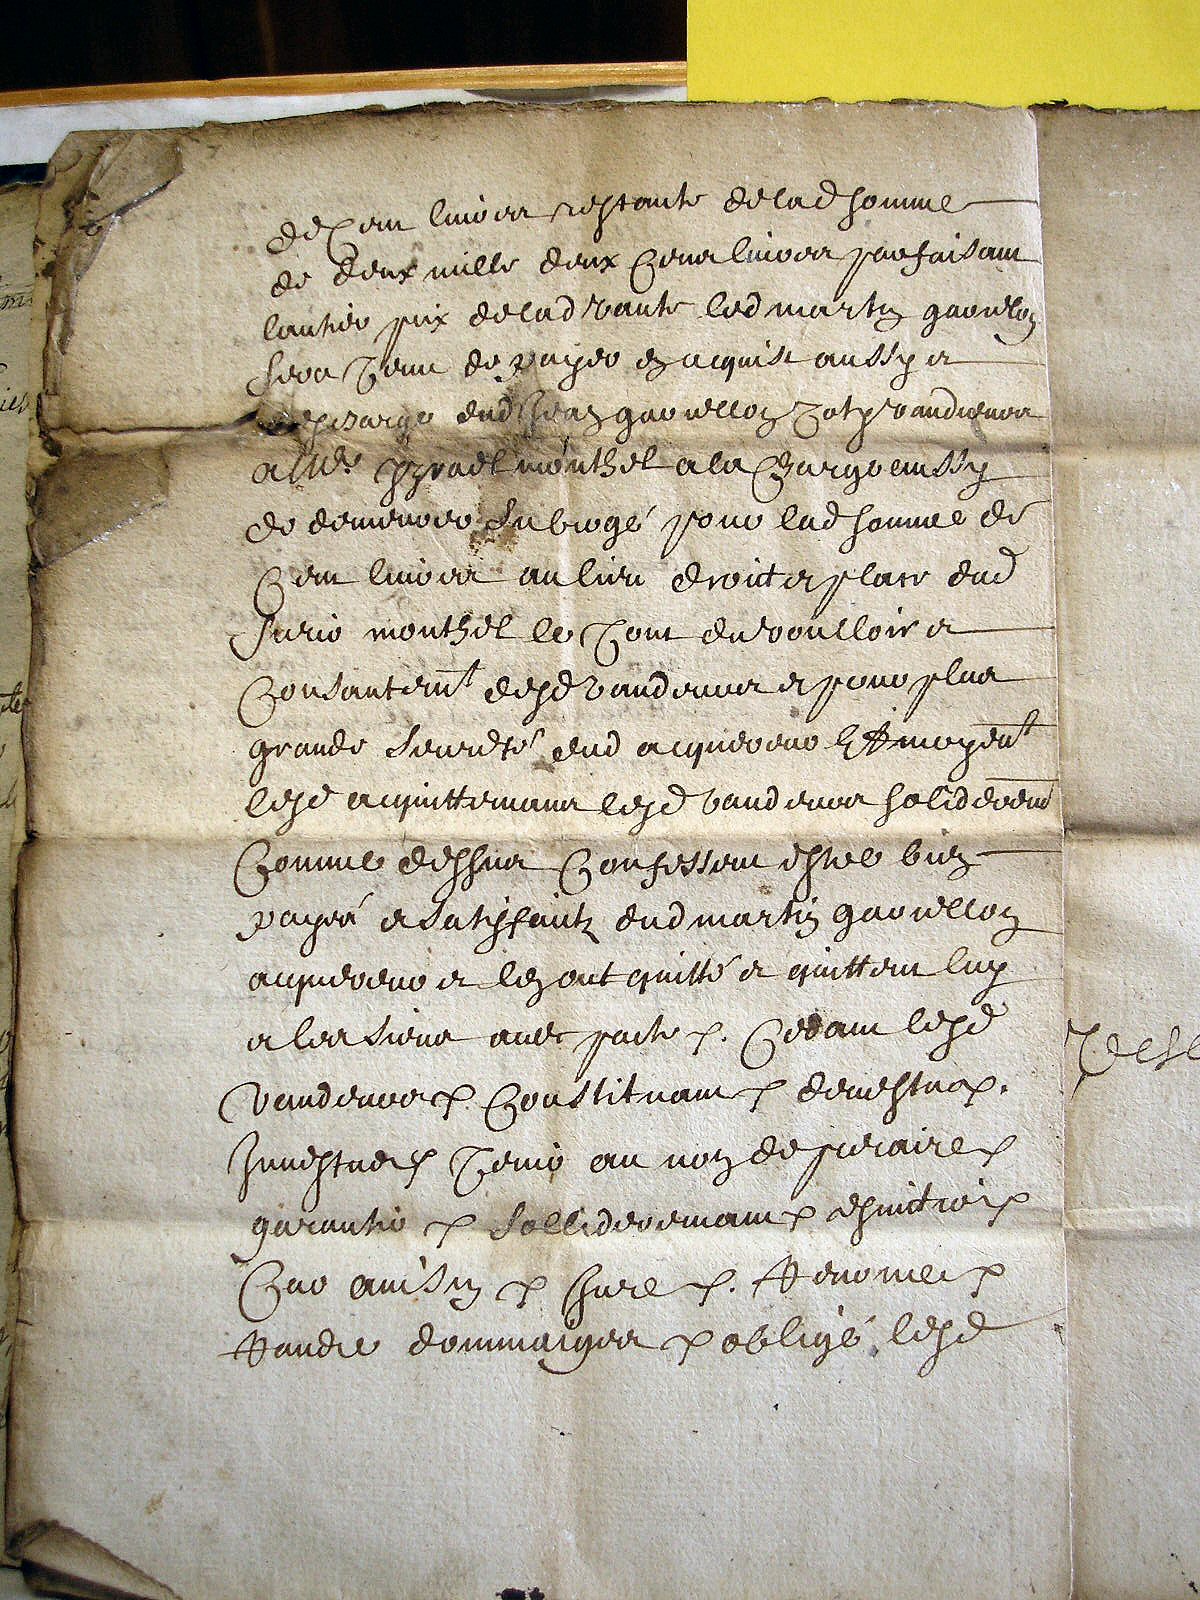 de Cent livres restante de lad somme
de deux mille deux Cens livres parfaisant
lantier prix de lad vante led martin gavrellon
sera Tenu de payer en acquist aussy et
descharge dud Jean gavrellon vandeurs
a Me monthel a la Charge aussy
de demeurer subrogé pour lad somme de
Cent livres au lieu droict et place dud
sieur monthel le Tout du voulloir et
Consantemt desd vandeurs et pour plus
grande seureté dud acquereur Et moyent
lesd acquittemans lesd vandeurs soliderem
Comme dessus Confessent estre bien
payés et satisfaictz dud martin gavrellon
acquereur et len ont quitté et quittent luy
et les siens avec pacte p. Cedant lesd
vandeurs p. Constituant p devestus p.
Investue p Tenir au nom de precaire p
garantir p sollideremant p esvictio p
Car ainsin p Jure p. Renonce p
Rande dommaiges p obligé lesd